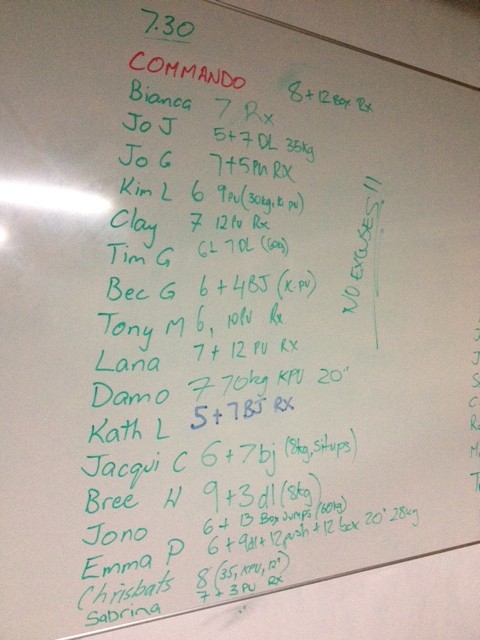 7.30
COMMANDO
8+12 Box Rx
Bianca 7 Rx
Jo J 5+7 DL 35kg
Jo G 7+5PU RX
Kim L 6 9PU (30kg, K PU)
Clay 7 12PU Rx
Tim G 6L 7DL (60kg)
Bec G 6+4BJ (K-PU)
Tony M 6, 10PU Rx
Lana 7+12 PU RX
Damo 7 70kg KPU 20"
Kath L 5+7BJ RX
Jacqui C 6+7bj (8kg, Situps)
Bree W 9+3dl (8kg)
Jono 6+13 Box Jumps (60kg)
Emma P 6+9dl+12push+12box 20" 28kg
Chrisbats 8 (35, KPU, 12")
Sabrina 7+3PU RX
NO EXCUSES!!